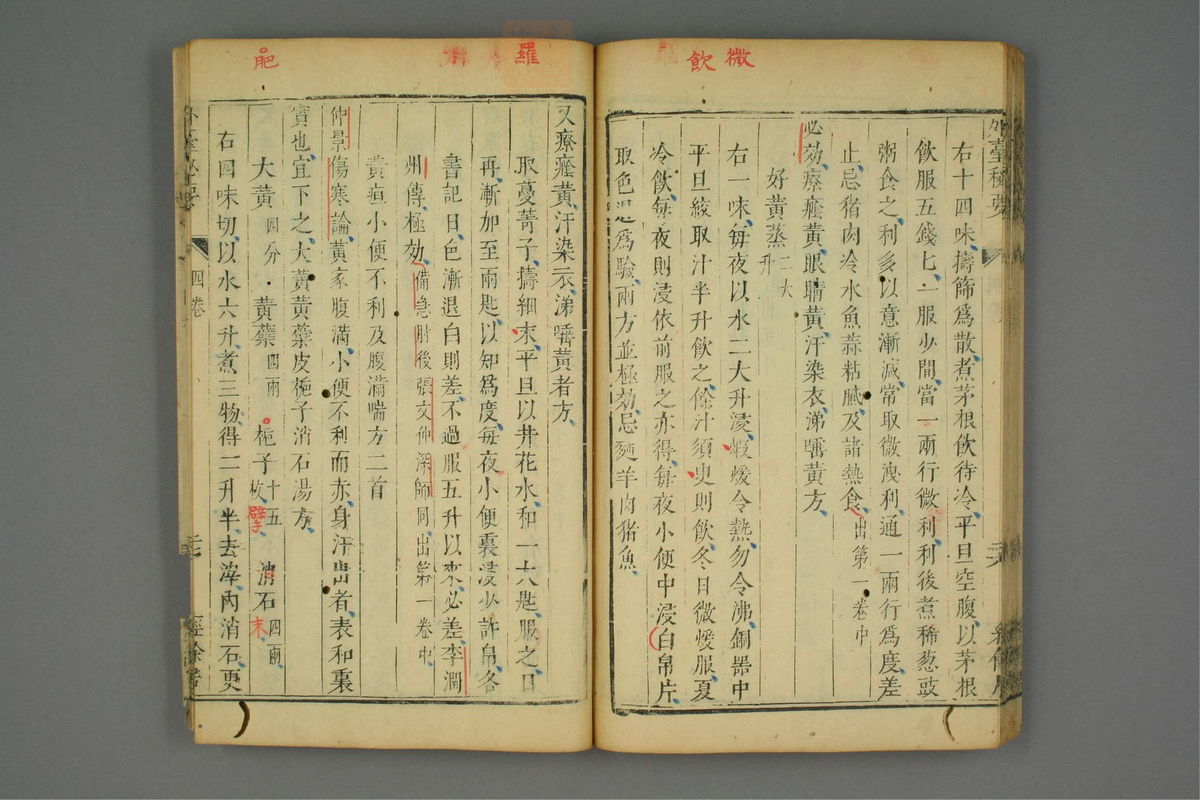 微
飲
外臺秘要
右十四味擣篩爲散煮茅根飲待冷平旦空腹以茅根
飲服五錢匕一服少間當一兩行微利利後煮稀葱豉
粥食之利多以意漸減常取微溏利通一兩行爲度差
止忌猪肉冷水魚蒜粘膩及諸熱食出第一卷中
必効療癊黄眼睛黄汗染衣涕唾黄方
好黄蒸二大升
右一味每夜以水二大升浸煖令熱勿令沸銅器中
平旦絞取汁半升飲之餘汁須臾則飲冬日微煖服夏
冷飲每夜則浸依前服之亦得每夜小便中浸白帛片
取色退爲驗兩方並極効忌麵羊肉猪魚
羅
又療癊黄汗染衣涕唾黄者方
取蔓菁子擣細末平旦以井花水和一大匙服之日
再漸加至兩匙以知爲度每夜小便裏浸少許帛各
書記日色漸退白則差不過服五升以來必差李潤
州傳極効備急肘後張文仲深師同出第一卷中
黄疸小便不利及腹滿喘方二首
仲景傷寒論黄家腹滿小便不利而赤身汗出者表和裏
實也宜下之大黄黄蘗皮梔子消石湯方
大黄四分 黄蘗四兩 梔子十五枚擘 消石四兩末
右四味切以水六升煮三物得二升半去滓內消石更
四卷